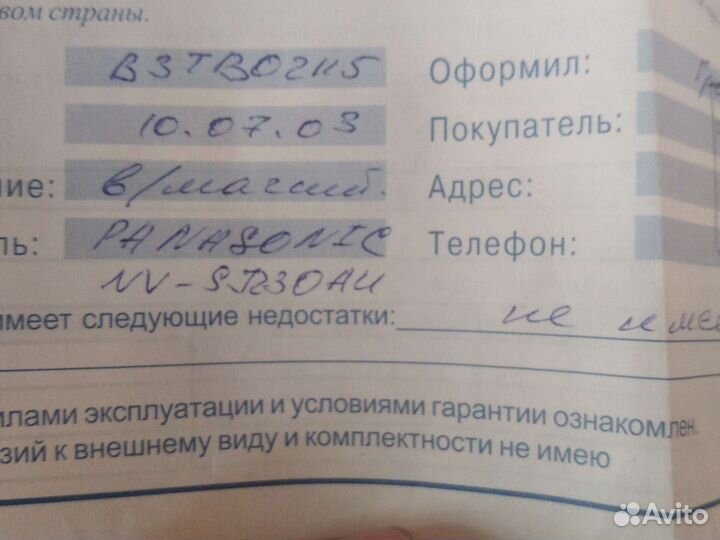 вом страны.
B3TB02115 Оформил:
10.07.03 Покупатель:
ие: в/магниб. Адрес:
ль: PANASONIC Телефон:
NV-SJ230AU
имеет следующие недостатки: не име
илами эксплуатации и условиями гарантии ознакомлен.
зий к внешнему виду и комплектности не имею
Avito